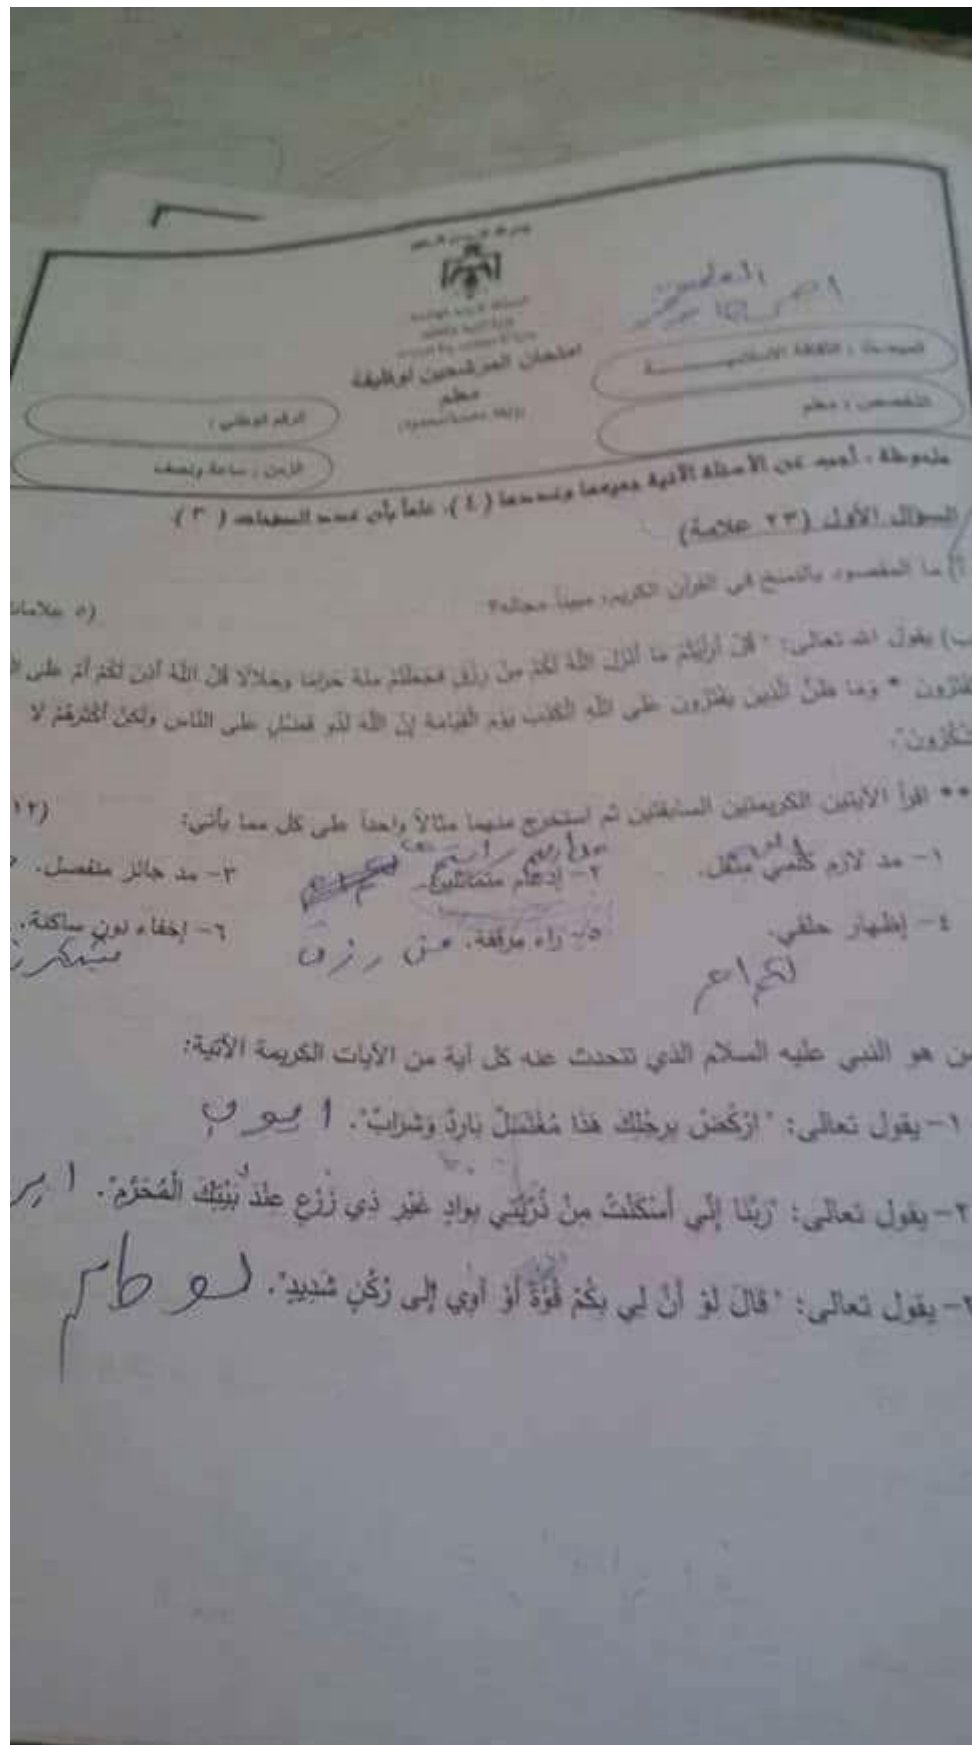 المملكة الأردنية الهاشمية
وزارة التربية والتعليم
امتحان المرشحين لوظيفة
معلم
المبحث : الثقافة الاسلاميــــــة
التخصص : معلم
الرقم الوطني :
الزمن : ساعة ونصف
ملحوظة : أجب عن الأسئلة الآتية جميعها وعددها (٤)، علماً بأن عدد الصفحات (٣).
السؤال الأول (٢٣ علامة)
أ) ما المقصود بالنسخ في القرآن الكريم، مبيناً مجاله؟ (٥ علامات
ب) يقول الله تعالى: " قُلْ أَرَأَيْتُمْ مَا أَنْزَلَ اللَّهُ لَكُمْ مِنْ رِزْقٍ فَجَعَلْتُمْ مِنْهُ حَرَامًا وَحَلَالًا قُلْ آللَّهُ أَذِنَ لَكُمْ أَمْ عَلَى
تَفْتَرُونَ * وَمَا ظَنُّ الَّذِينَ يَفْتَرُونَ عَلَى اللَّهِ الْكَذِبَ يَوْمَ الْقِيَامَةِ إِنَّ اللَّهَ لَذُو فَضْلٍ عَلَى النَّاسِ وَلَكِنَّ أَكْثَرَهُمْ لَا
يَشْكُرُونَ".
** اقرأ الآيتين الكريمتين السابقتين ثم استخرج منهما مثالاً واحداً على كل مما يأتي: (١٢
١- مد لازم كلمي مثقل. ٢- إدغام متماثلين. ٣- مد جائز منفصل.
٤- إظهار حلقي. ٥- راء مرققة. من رزق ٦- إخفاء نون ساكنة.
لكم ام
من هو النبي عليه السلام الذي تتحدث عنه كل آية من الآيات الكريمة الآتية:
١- يقول تعالى: " ارْكُضْ بِرِجْلِكَ هَذَا مُغْتَسَلٌ بَارِدٌ وَشَرَابٌ". ايوب
٢- يقول تعالى: "رَبَّنَا إِنِّي أَسْكَنْتُ مِنْ ذُرِّيَّتِي بِوَادٍ غَيْرِ ذِي زَرْعٍ عِنْدَ بَيْتِكَ الْمُحَرَّمِ".
٣- يقول تعالى: "قَالَ لَوْ أَنَّ لِي بِكُمْ قُوَّةً أَوْ آوِي إِلَى رُكْنٍ شَدِيدٍ".